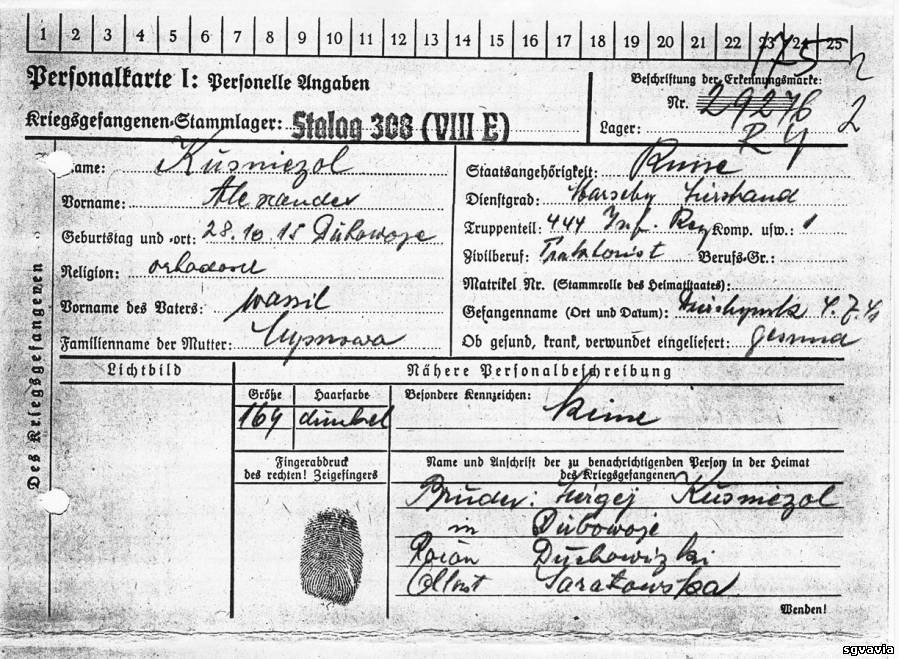 1 2 3 4 5 6 7 8 9 10 11 12 13 14 15 16 17 18 19 20 21 22 23 24 25
175 2
Personalkarte I: Personelle Angaben
Beschriftung der Erkennungsmarke:
Nr. 29276 2
Kriegsgefangenen-Stammlager: Stalag 308 (VIII E)
Lager:
Des Kriegsgefangenen
Name: Kusniezol
Vorname: Alexander
Geburtstag und -ort: 28.10.15 Dubowoje
Religion: orthodox
Vorname des Vaters: Wassil
Familienname der Mutter:
Staatsangehörigkeit: Russe
Dienstgrad:
Truppenteil: 444 Inf. Reg Komp. usw.: 1
Zivilberuf: Traktorist Berufs-Gr.:
Matrikel Nr. (Stammrolle des Heimatstaates):
Gefangenname (Ort und Datum): 4.7.41
Ob gesund, krank, verwundet eingeliefert: gesund
Lichtbild
Nähere Personalbeschreibung
Größe Haarfarbe Besondere Kennzeichen: keine
169 dunkel
Fingerabdruck
des rechten! Zeigefingers
Name und Anschrift der zu benachrichtigenden Person in der Heimat
des Kriegsgefangenen
Bruder: Sergej Kusniezol
in Dubowoje
Raion Duchowizki
Oblast Saratowska
Wenden!
sgvavia